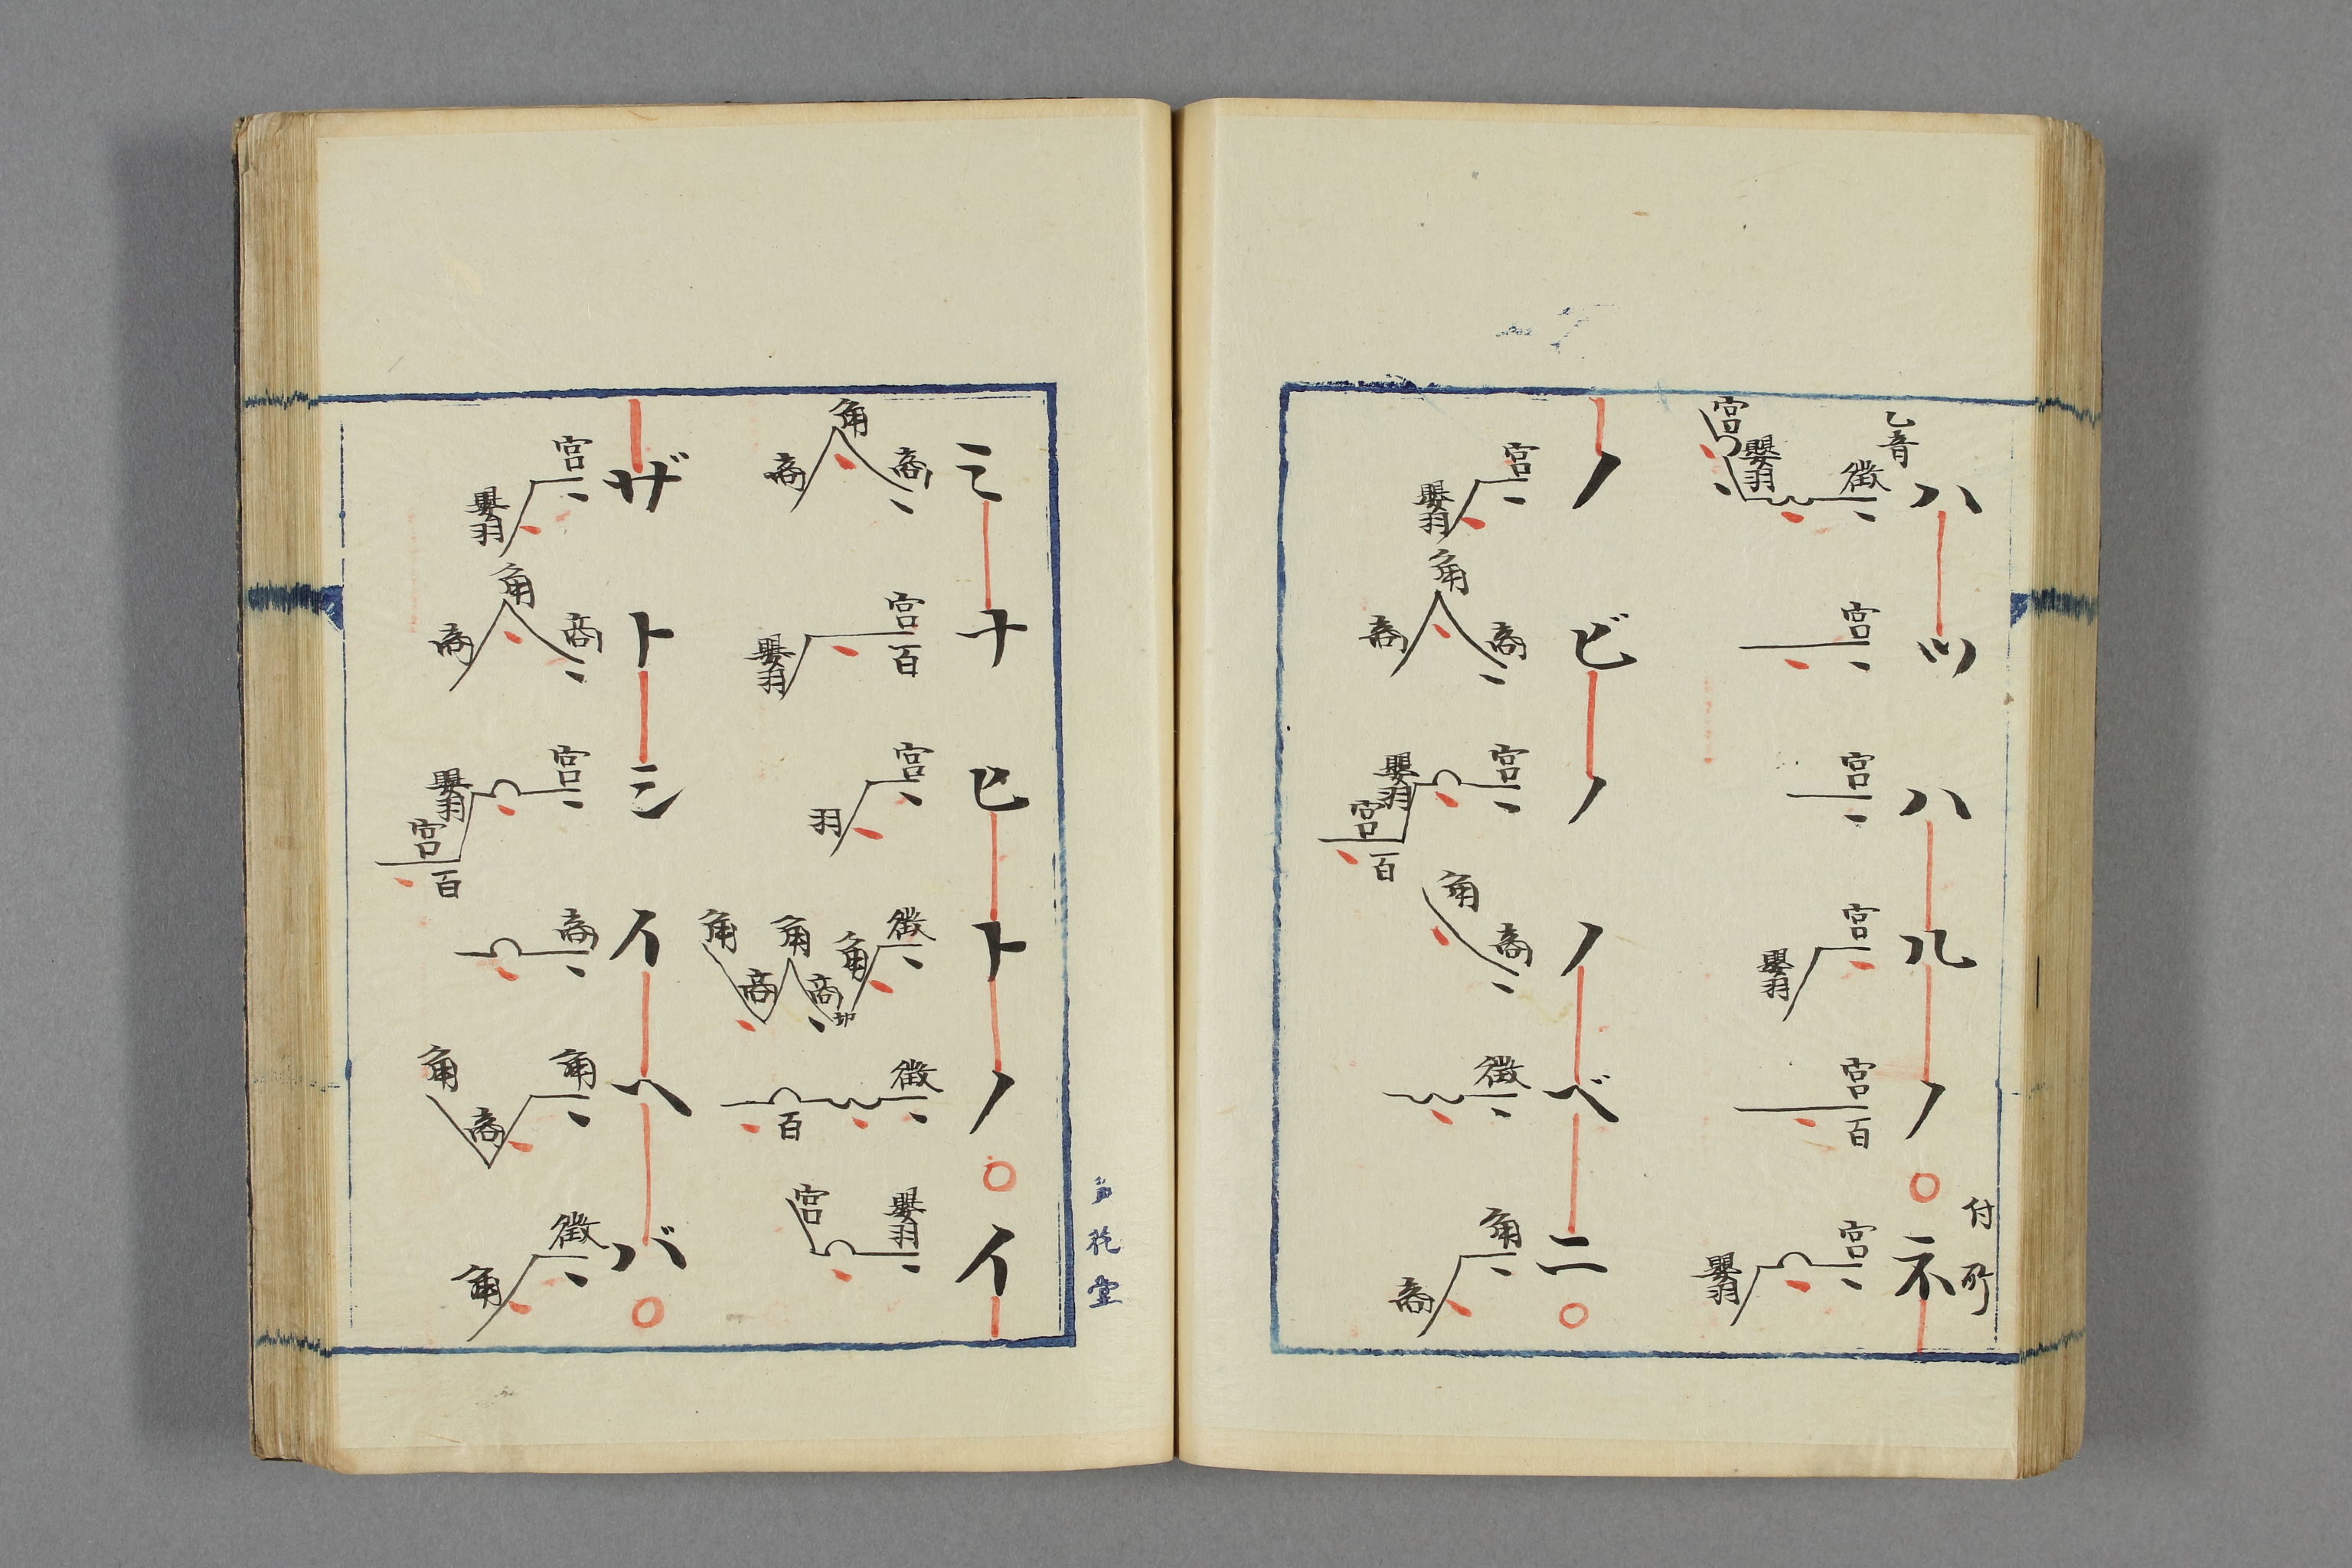 乙音
ハツハルノ○ネ
付所
徴嬰羽宮
宮
宮
宮嬰羽
宮百
宮嬰羽
ノビノノベニ○
宮嬰羽
商角商
宮嬰羽宮百
商角
徴
角商
堂
ミナヒトノ○イ
商角商
宮百嬰羽
宮羽
徴角商角商角
徴百
嬰羽宮
ザトシイヘバ○
宮嬰羽
商角商
宮嬰羽宮百
商
角商角
徴角